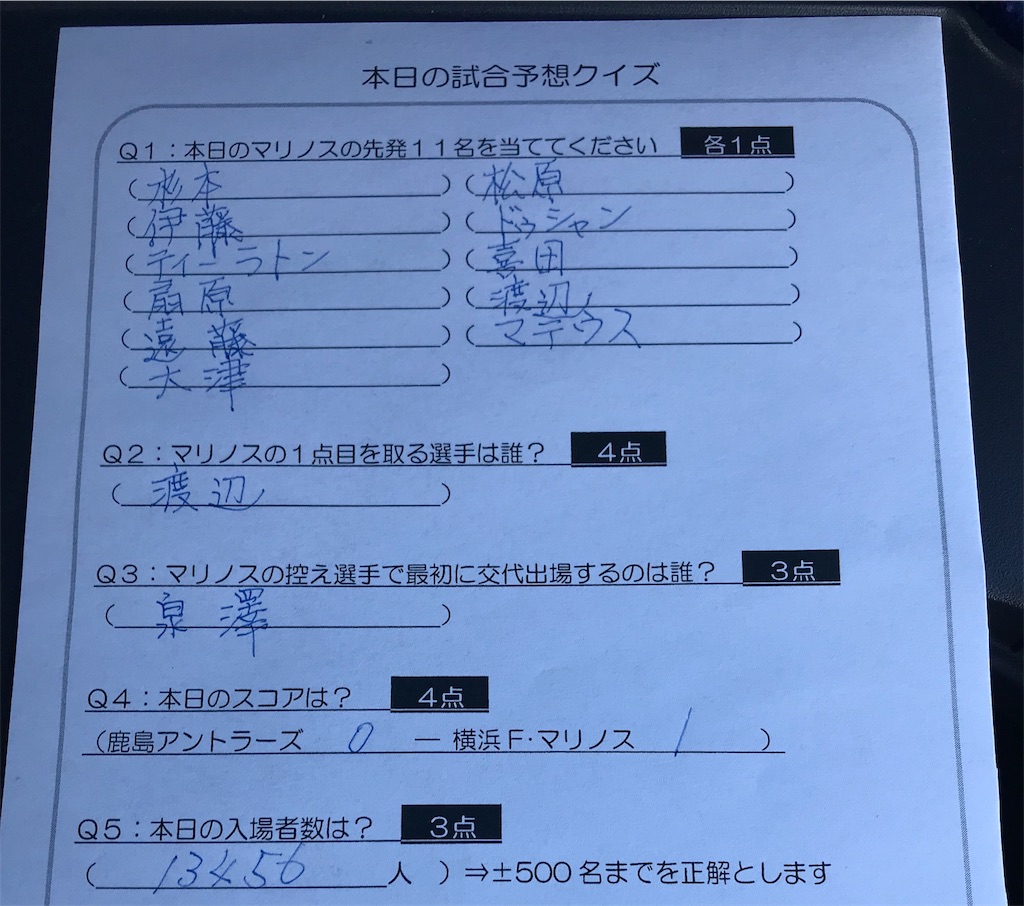 本日の試合予想クイズ
Q1：本日のマリノスの先発11名を当ててください 各1点
(杉本) (松原)
(伊藤) (ドゥシャン)
(ティーラトン) (喜田)
(扇原) (渡辺)
(遠藤) (マテウス)
(大津)
Q2：マリノスの1点目を取る選手は誰？ 4点
(渡辺)
Q3：マリノスの控え選手で最初に交代出場するのは誰？ 3点
(泉澤)
Q4：本日のスコアは？ 4点
(鹿島アントラーズ 0 ― 横浜F・マリノス 1 )
Q5：本日の入場者数は？ 3点
(13456人 )⇒±500名までを正解とします